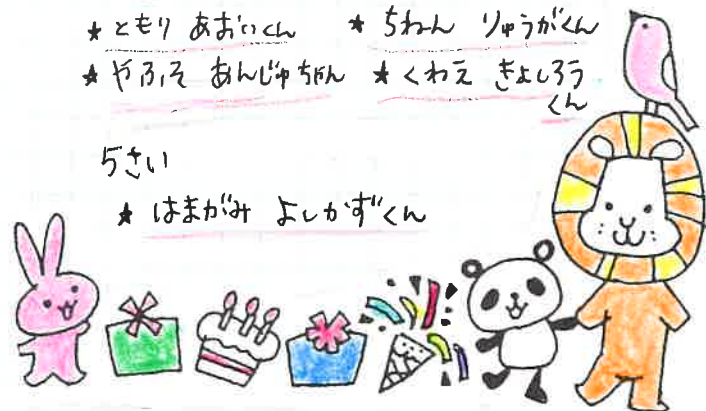 ★ともり あおいくん ★ちねん りゅうがくん
★やふそ あんじゅちゃん ★くわえ きよしろう
くん
5さい
★はまがみ よしかずくん